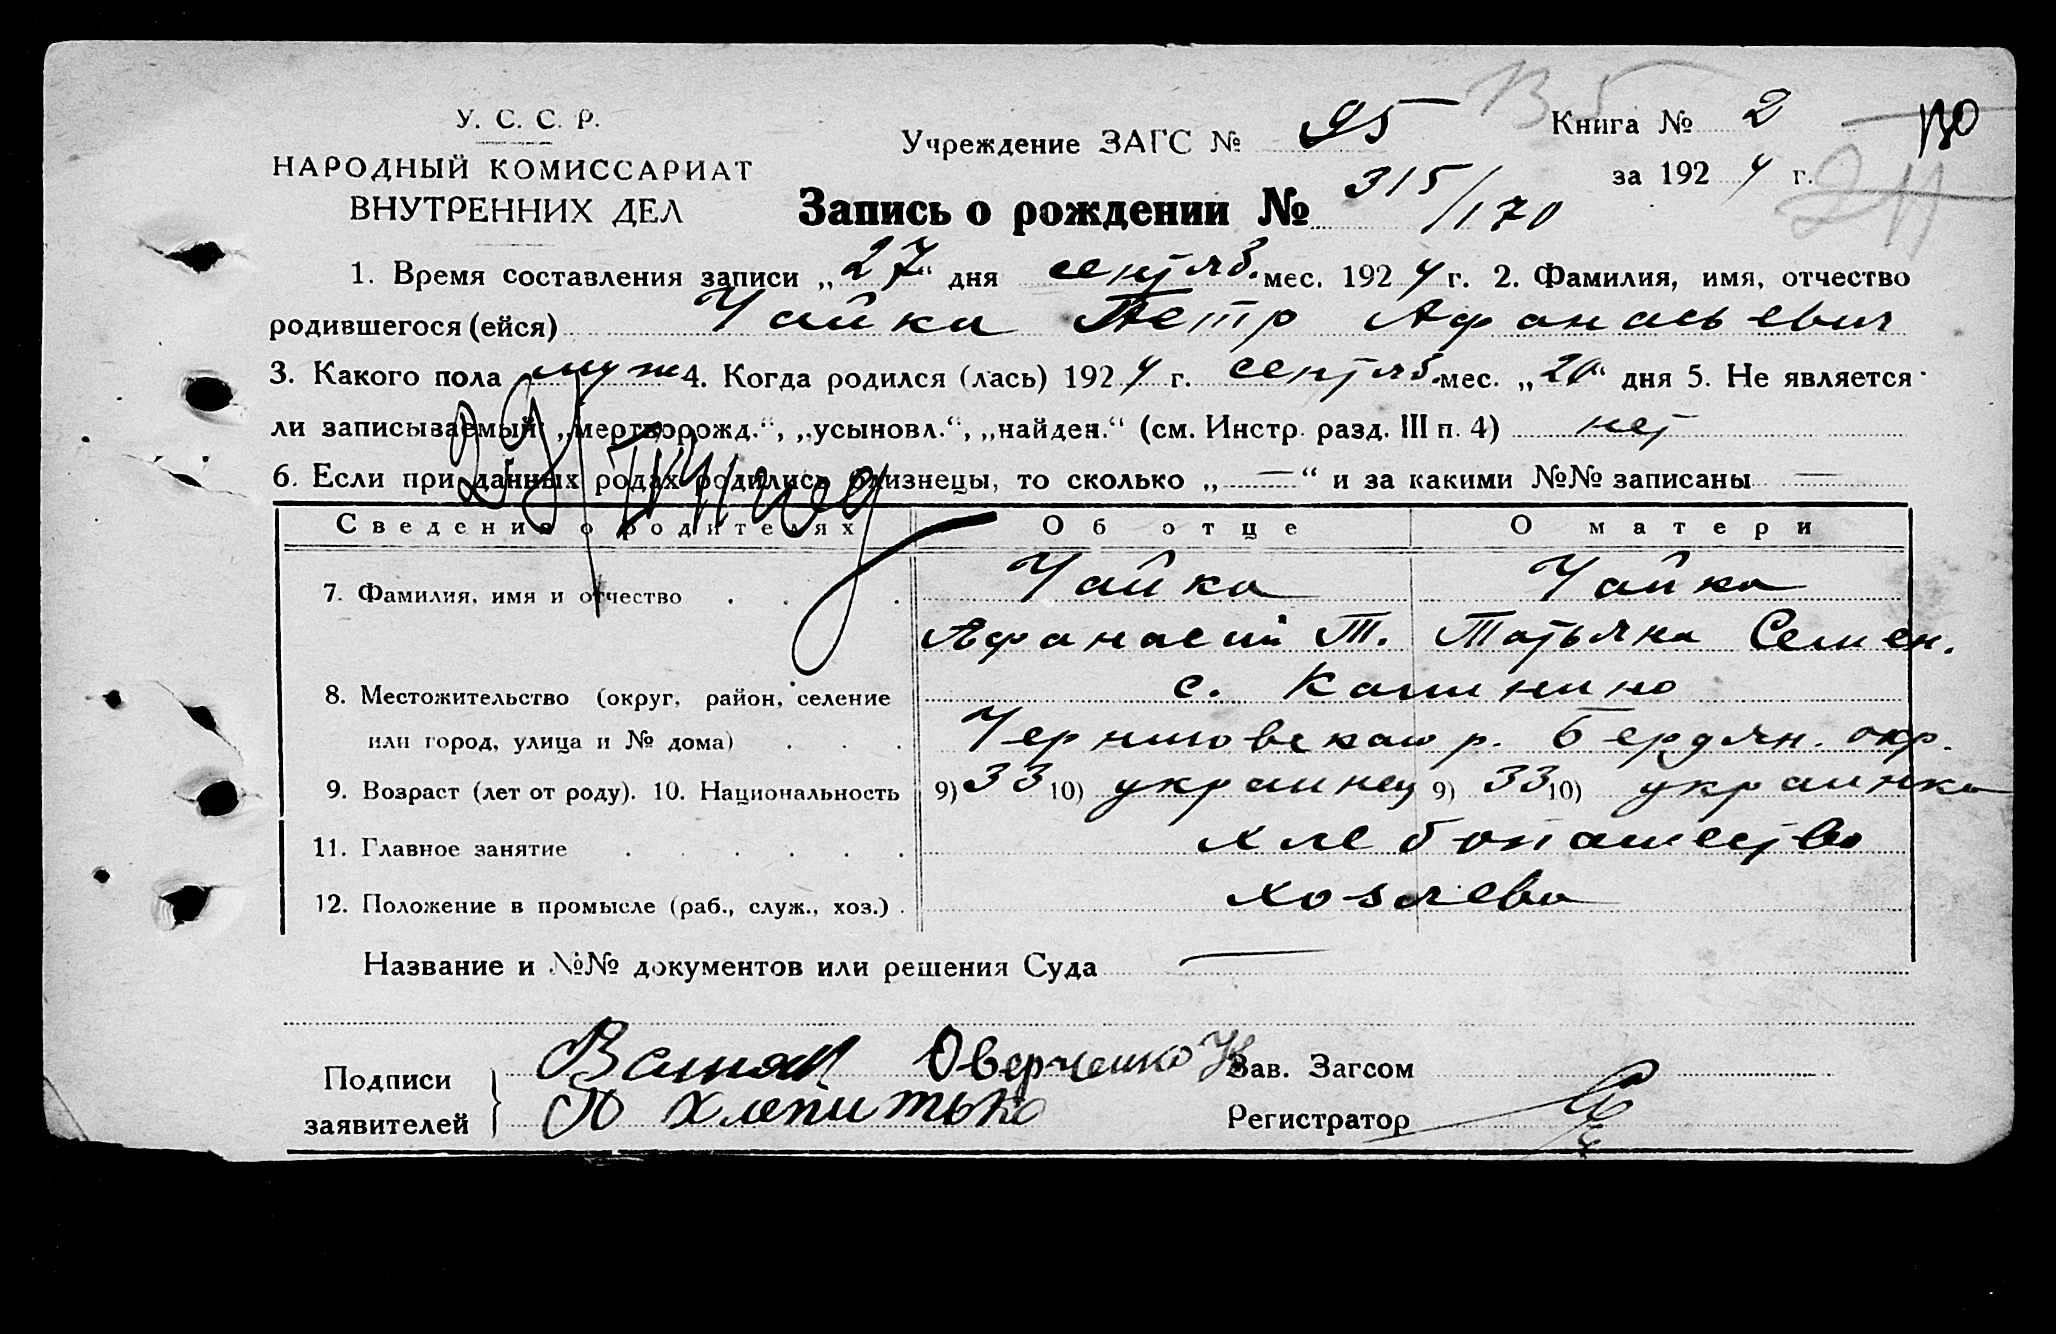 У. С. С. Р.
НАРОДНЫЙ КОМИССАРИАТ
ВНУТРЕННИХ ДЕЛ
Учреждение ЗАГС № 95
Книга № 2
за 1924 г.
Запись о рождении № 315/170
1. Время составления записи „27“ дня сентяб. мес. 1924 г. 2. Фамилия, имя, отчество
родившегося (ейся) Чайка Петр Афанасьевич
3. Какого пола муж 4. Когда родился (лась) 1924 г. сентяб. мес. „20“ дня 5. Не является
ли записываемый „мертворожд.“, „усыновл.“, „найден.“ (см. Инстр. разд. III п. 4) нет
6. Если при данных родах родились близнецы, то сколько „—“ и за какими №№ записаны —
Сведения о родителях Об отце О матери
7. Фамилия, имя и отчество Чайка Чайка
Афанасий Т. Татьяна Семен.
8. Местожительство (округ, район, селение с. Калинино
или город, улица и № дома) Черниговского р. Бердян. окр.
9. Возраст (лет от роду). 10. Национальность 9) 33 10) украинец 9) 33 10) украинка
11. Главное занятие хлебопашество
12. Положение в промысле (раб., служ., хоз.) хозяева
Название и №№ документов или решения Суда —
Подписи
заявителей
Оверченко
Зав. Загсом
Регистратор